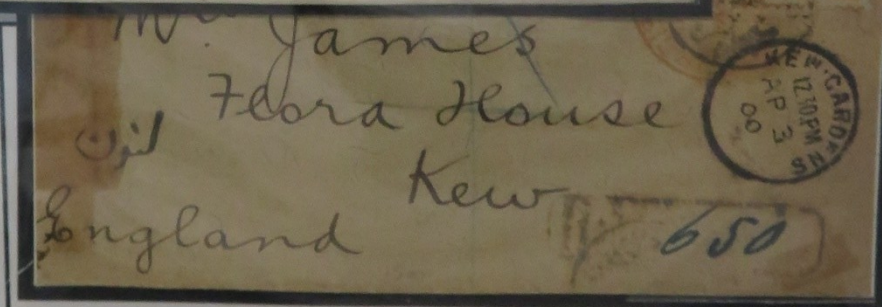 Mr. James
Flora House
لندن
Kew
England
650
KEW·GARDENS
12.10 PM
AP 3
00